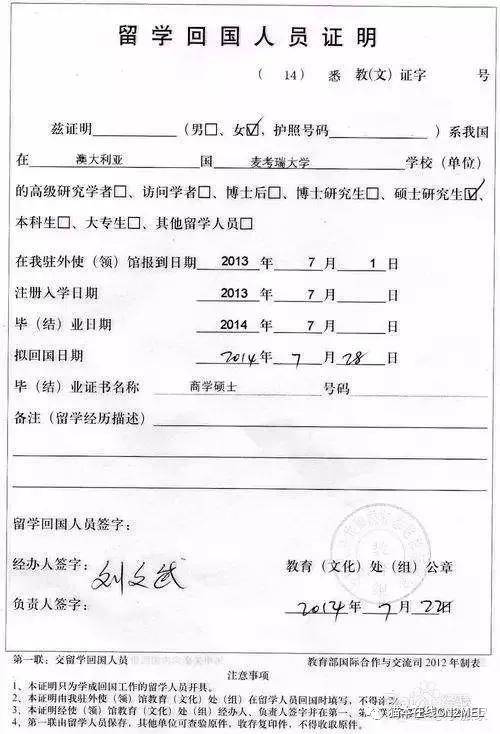 留学回国人员证明
（ 14） 悉 教(文）证字 号
兹证明 (男□、女☑, 护照号码 ) 系我国
在 澳大利亚 国 麦考瑞大学 学校 (单位)
的高级研究学者□、访问学者□、博士后□、博士研究生□、硕士研究生☑、
本科生□、大专生□、其他留学人员□
在我驻外使（领）馆报到日期 2013 年 7 月 1 日
注册入学日期 2013 年 7 月 日
毕（结）业日期 2014 年 7 月 日
拟回国日期 2014 年 7 月 28 日
毕（结）业证书名称 商学硕士 号码
备注（留学经历描述）
留学回国人员签字：
经办人签字： 刘文武 教育（文化）处（组）公章
负责人签字： 2014 年 7 月 22日
第一联：交留学回国人员 教育部国际合作与交流司 2012 年制表
注意事项
1、本证明只为学成回国工作的留学人员开具。
2、本证明由我驻外使（领）馆教育（文化）处（组）在留学人员回国时填写，不得涂
3、本证明经使（领）馆教育（文化）处（组）经办人、负责人签字并在第一、第
4、第一联由留学人员保存，其他单位可查验原件，收存复印件，不得收取原件。